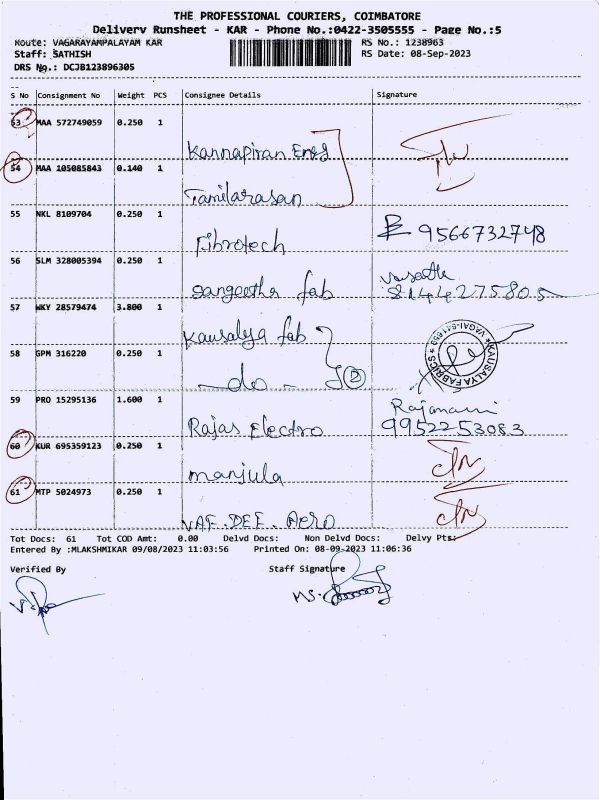 THE PROFESSIONAL COURIERS, COIMBATORE
Delivery Runsheet - KAR - Phone No.:0422-3505555 - Page No.:5
Route: VAGARAYAMPALAYAM KAR RS No.: 1238963
Staff: SATHISH RS Date: 08-Sep-2023
DRS No.: DCJB123896305
S No Consignment No Weight PCS Consignee Details Signature
53 MAA 572749059 0.250 1
Kannapiran Eng
54 MAA 105085843 0.140 1
Tamilarasan
55 NKL 8109704 0.250 1
Fibrotech 9566732748
56 SLM 328005394 0.250 1
Sangeetha fab 8144275805
57 WKY 28579474 3.800 1
Kausalya fab
KAUSALYA FABRICS * VAGAI-641659 *
58 GPM 316220 0.250 1
- do - 2
59 PRO 15295136 1.600 1 Rajamani
Rajas Electro 9952253083
60 KUR 695359123 0.250 1
manjula
61 MTP 5024973 0.250 1
VAF.DEF.Aero
Tot Docs: 61 Tot COD Amt: 0.00 Delvd Docs: Non Delvd Docs: Delvy Pts:
Entered By :MLAKSHMIKAR 09/08/2023 11:03:56 Printed On: 08-09-2023 11:06:36
Verified By Staff Signature